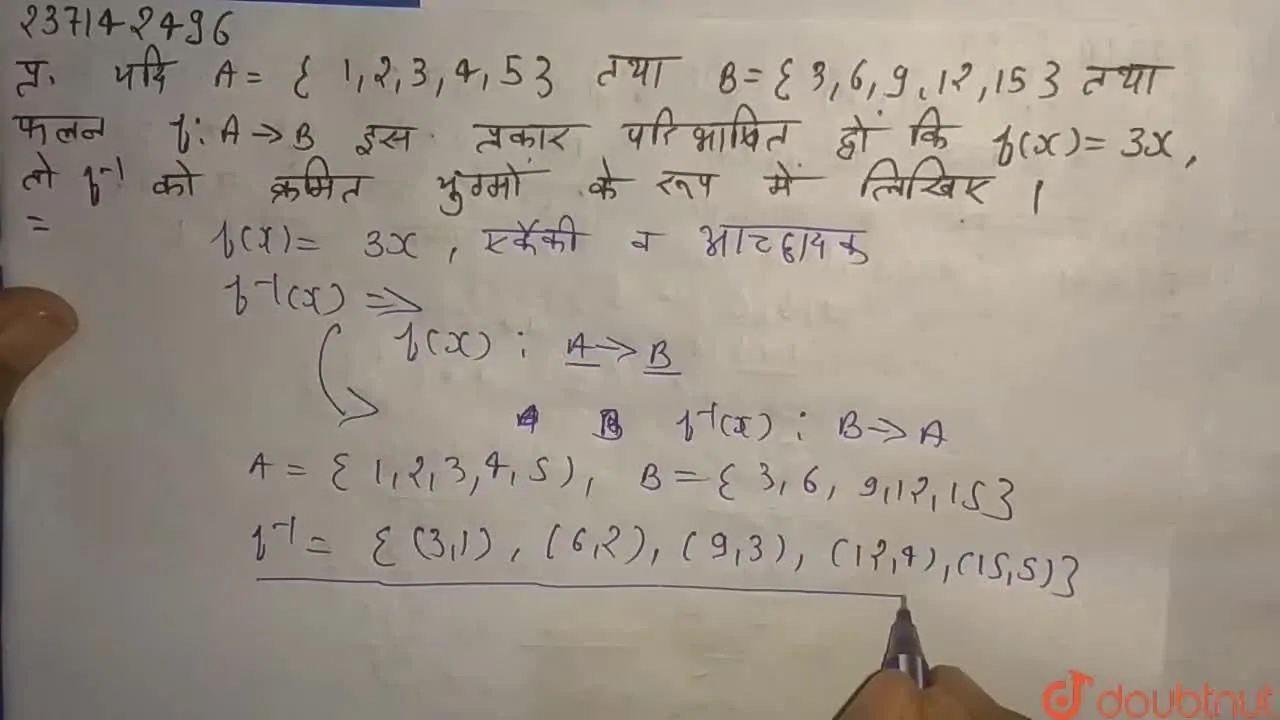 237142496
प्र. यदि A = { 1, 2, 3, 4, 5 } तथा B = { 3, 6, 9, 12, 15 } तथा
फलन f : A → B इस प्रकार परिभाषित हों कि f(x) = 3x ,
तो f⁻¹ को क्रमित युग्मों के रूप में लिखिए ।
=
f(x) = 3x , एकैकी व आच्छादक
f⁻¹(x) ⇒
f(x) : A → B
A B f⁻¹(x) : B → A
A = { 1, 2, 3, 4, 5 ) , B = { 3, 6, 9, 12, 15 }
f⁻¹ = { (3,1) , (6,2) , (9,3) , (12,4) , (15,5) }
doubtnut